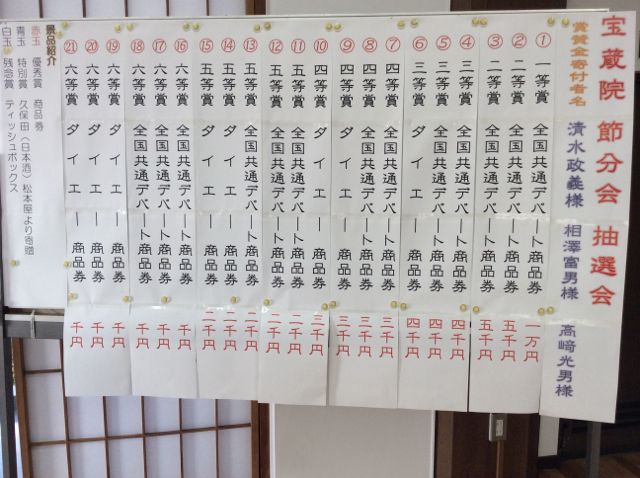 宝蔵院 節分会 抽選会
賞賛金寄付者名 清水政義様 相澤富男様 高﨑光男様
① 一等賞 全国共通デパート商品券 一万円
② 二等賞 全国共通デパート商品券 五千円
③ 二等賞 全国共通デパート商品券 五千円
④ 三等賞 全国共通デパート商品券 四千円
⑤ 三等賞 全国共通デパート商品券 四千円
⑥ 三等賞 全国共通デパート商品券 四千円
⑦ 四等賞 全国共通デパート商品券 三千円
⑧ 四等賞 全国共通デパート商品券 三千円
⑨ 四等賞 ダイエー商品券 三千円
⑩ 四等賞 ダイエー商品券 三千円
⑪ 五等賞 全国共通デパート商品券 二千円
⑫ 五等賞 全国共通デパート商品券 二千円
⑬ 五等賞 全国共通デパート商品券 二千円
⑭ 五等賞 ダイエー商品券 二千円
⑮ 五等賞 ダイエー商品券 二千円
⑯ 六等賞 全国共通デパート商品券 千円
⑰ 六等賞 全国共通デパート商品券 千円
⑱ 六等賞 全国共通デパート商品券 千円
⑲ 六等賞 ダイエー商品券 千円
⑳ 六等賞 ダイエー商品券 千円
㉑ 六等賞 ダイエー商品券 千円
景品紹介
赤玉 優秀賞 商品券
青玉 特別賞 久保田(日本酒)松本屋より寄贈
白玉 残念賞 ティッシュボックス